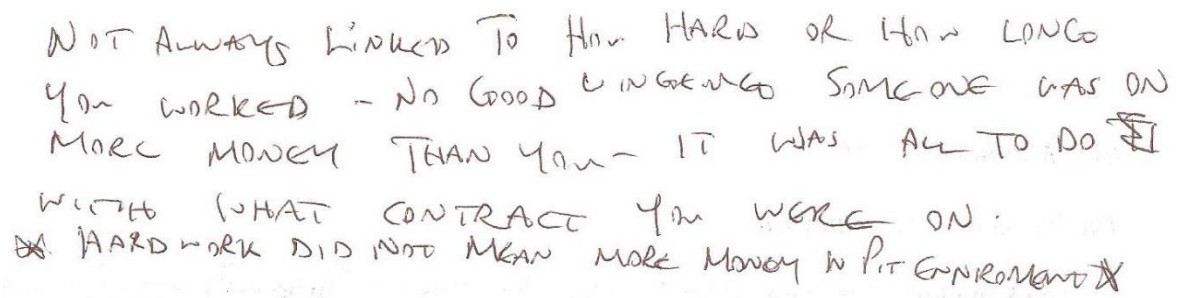 NOT ALWAYS LINKED TO HOW HARD OR HOW LONG
YOU WORKED - NO GOOD WINGEING SOMEONE WAS ON
MORE MONEY THAN YOU - IT WAS ALL TO DO
WITH WHAT CONTRACT YOU WERE ON.
HARDWORK DID NOT MEAN MORE MONEY IN PIT ENNIROMENT